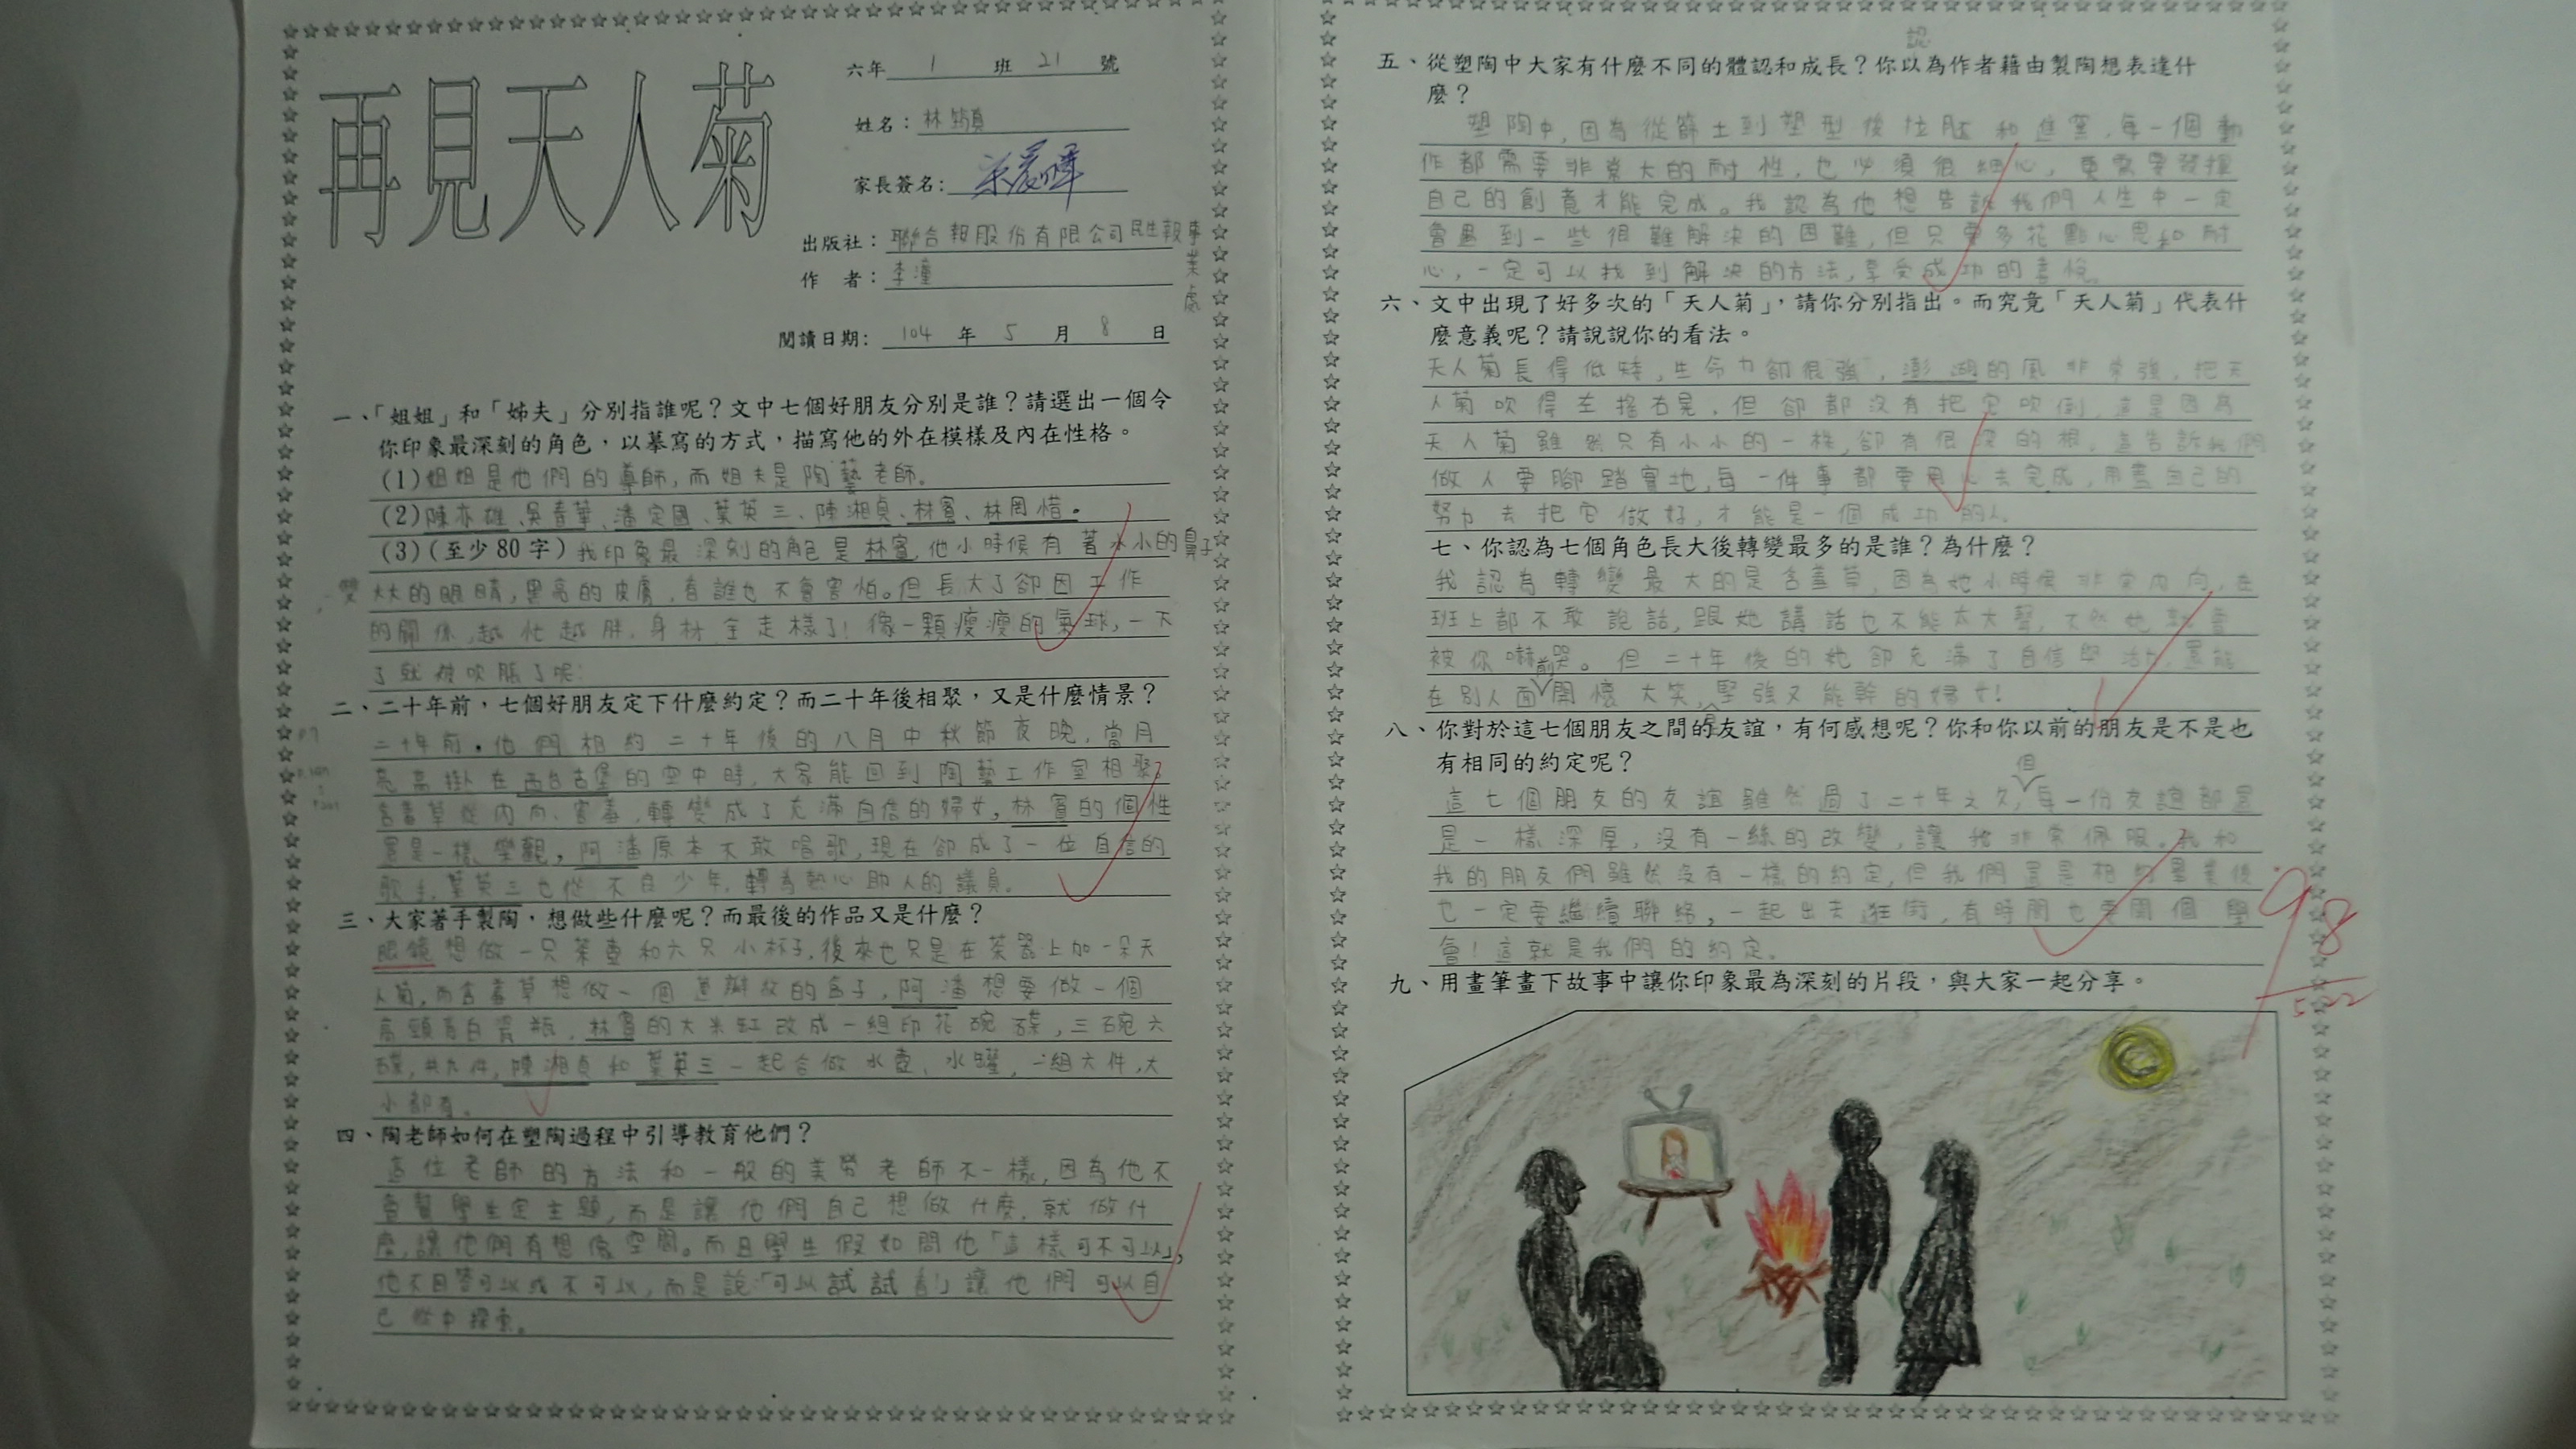 再見天人菊
六年 1 班 21 號
姓名：林
家長簽名：
出版社：聯合報股份有限公司民生報事業處
作 者：李潼
閱讀日期： 104 年 5 月 8 日
一、「姐姐」和「姊夫」分別指誰呢？文中七個好朋友分別是誰？請選出一個令
你印象最深刻的角色，以摹寫的方式，描寫他的外在模樣及內在性格。
(1)姐姐是他們的導師，而姐夫是陶藝老師。
(2)陳亦雄、吳春華、潘定國、葉英三、陳湘貞、林賓、林罔惜。
(3)(至少80字)我印象最深刻的角色是林賓，他小時候有著小小的鼻子
，雙大大的眼睛，黑亮的皮膚，看誰也不會害怕。但長大了卻因工作
的關係，越忙越胖，身材全走樣了！像一顆瘦瘦的氣球，一下
了就被吹脹了呢！
二、二十年前，七個好朋友定下什麼約定？而二十年後相聚，又是什麼情景？
P.7
二十年前，他們相約二十年後的八月中秋節夜晚，當月
亮高掛在西台古堡的空中時，大家能回到陶藝工作室相聚。
含羞草從內向、害羞，轉變成了充滿自信的婦女，林賓的個性
還是一樣樂觀，阿潘原本不敢唱歌，現在卻成了一位自信的
歌手，葉英三也從不良少年，轉為熱心助人的議員。
三、大家著手製陶，想做些什麼呢？而最後的作品又是什麼？
眼鏡想做一只茶壺和六只小杯子，後來也只是在茶器上加一朵天
人菊，而含羞草想做一個蓮瓣紋的盒子，阿潘想要做一個
高頸青白瓷瓶，林賓的大米缸改成一組印花碗碟，三碗六
碟，共九件，陳湘貞和葉英三一起合做水壺、水罐，一組六件，大
小都有。
四、陶老師如何在塑陶過程中引導教育他們？
這位老師的方法和一般的美勞老師不一樣，因為他不
會幫學生定主題，而是讓他們自己想做什麼，就做什
麼，讓他們有想像空間。而且學生假如問他「這樣可不可以」，
他不回答可以或不可以，而是說：「可以試試看！」讓他們可以自
己從中探索。
認
五、從塑陶中大家有什麼不同的體認和成長？你以為作者藉由製陶想表達什
麼？
塑陶中，因為從篩土到塑型後拉胚和進窯，每一個動
作都需要非常大的耐性，也必須很細心，更需要發揮
自己的創意才能完成。我認為他想告訴我們人生中一定
會遇到一些很難解決的困難，但只要多花點心思和耐
心，一定可以找到解決的方法，享受成功的喜悅。
六、文中出現了好多次的「天人菊」，請你分別指出。而究竟「天人菊」代表什
麼意義呢？請說說你的看法。
天人菊長得低矮，生命力卻很強，澎湖的風非常強，把天
人菊吹得左搖右晃，但卻都沒有把它吹倒，這是因為
天人菊雖然只有小小的一株，卻有很深的根，這告訴我們
做人要腳踏實地，每一件事都要用心去完成，用盡自己的
努力去把它做好，才能是一個成功的人。
七、你認為七個角色長大後轉變最多的是誰？為什麼？
我認為轉變最大的是含羞草，因為她小時候非常內向，在
班上都不敢說話，跟她講話也不能太大聲，不然她就會
被你嚇哭。但二十年後的她卻充滿了自信與活力，還能
在別人面前開懷大笑，是堅強又能幹的婦女！
八、你對於這七個朋友之間的友誼，有何感想呢？你和你以前的朋友是不是也
有相同的約定呢？
這七個朋友的友誼雖然過了二十年之久，但每一份友誼都還
是一樣深厚，沒有一絲的改變，讓我非常佩服。我和
我的朋友們雖然沒有一樣的約定，但我們還是相約畢業後
也一定要繼續聯絡，一起出去逛街，有時間也要開個同學
會！這就是我們的約定。
98
5/22
九、用畫筆畫下故事中讓你印象最為深刻的片段，與大家一起分享。